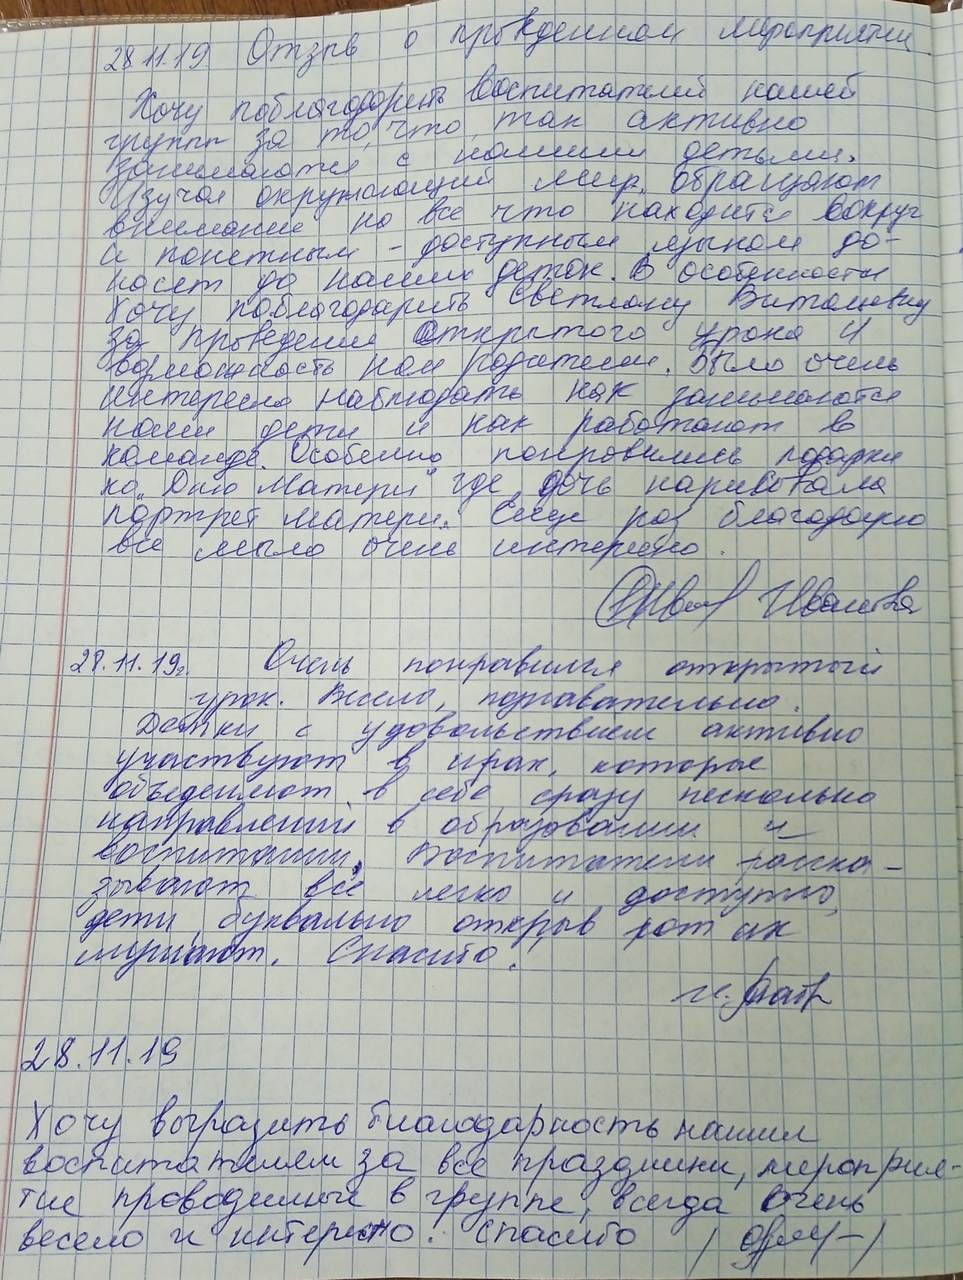 28.11.19 Отзыв о проведенном мероприятии
Хочу поблагодарить Воспитателей нашей
группы за то, что так активно
занимаются с нашими детьми.
Изучая окружающий мир, обращают
внимание на все что находится вокруг
и понятным - доступным языком до-
носят до наших деток. В особенности
Хочу поблагодарить Светлану Витальевну
за проведение Открытого урока и
возможность нам родителям. Было очень
интересно наблюдать как занимаются
наши дети и как работают в
команде. Особенно понравились подарки
ко "Дню Матери" где дочь нарисовала
портрет матери. Еще раз благодарю
все было очень интересно.
Иванова
28.11.19г. Очень понравился открытый
урок. Весело, познавательно.
Детки с удовольствием активно
участвуют в играх, которые
объеденяют в себе сразу несколько
направлений в образовании и
воспитании. Воспитатели расска-
зывают всё легко и доступно,
дети буквально открыв рот их
слушают. Спасибо.
28.11.19
Хочу выразить благодарность нашим
воспитателям за все праздники, мероприя-
тие проводимые в группе, всегда очень
весело и интересно. Спасибо